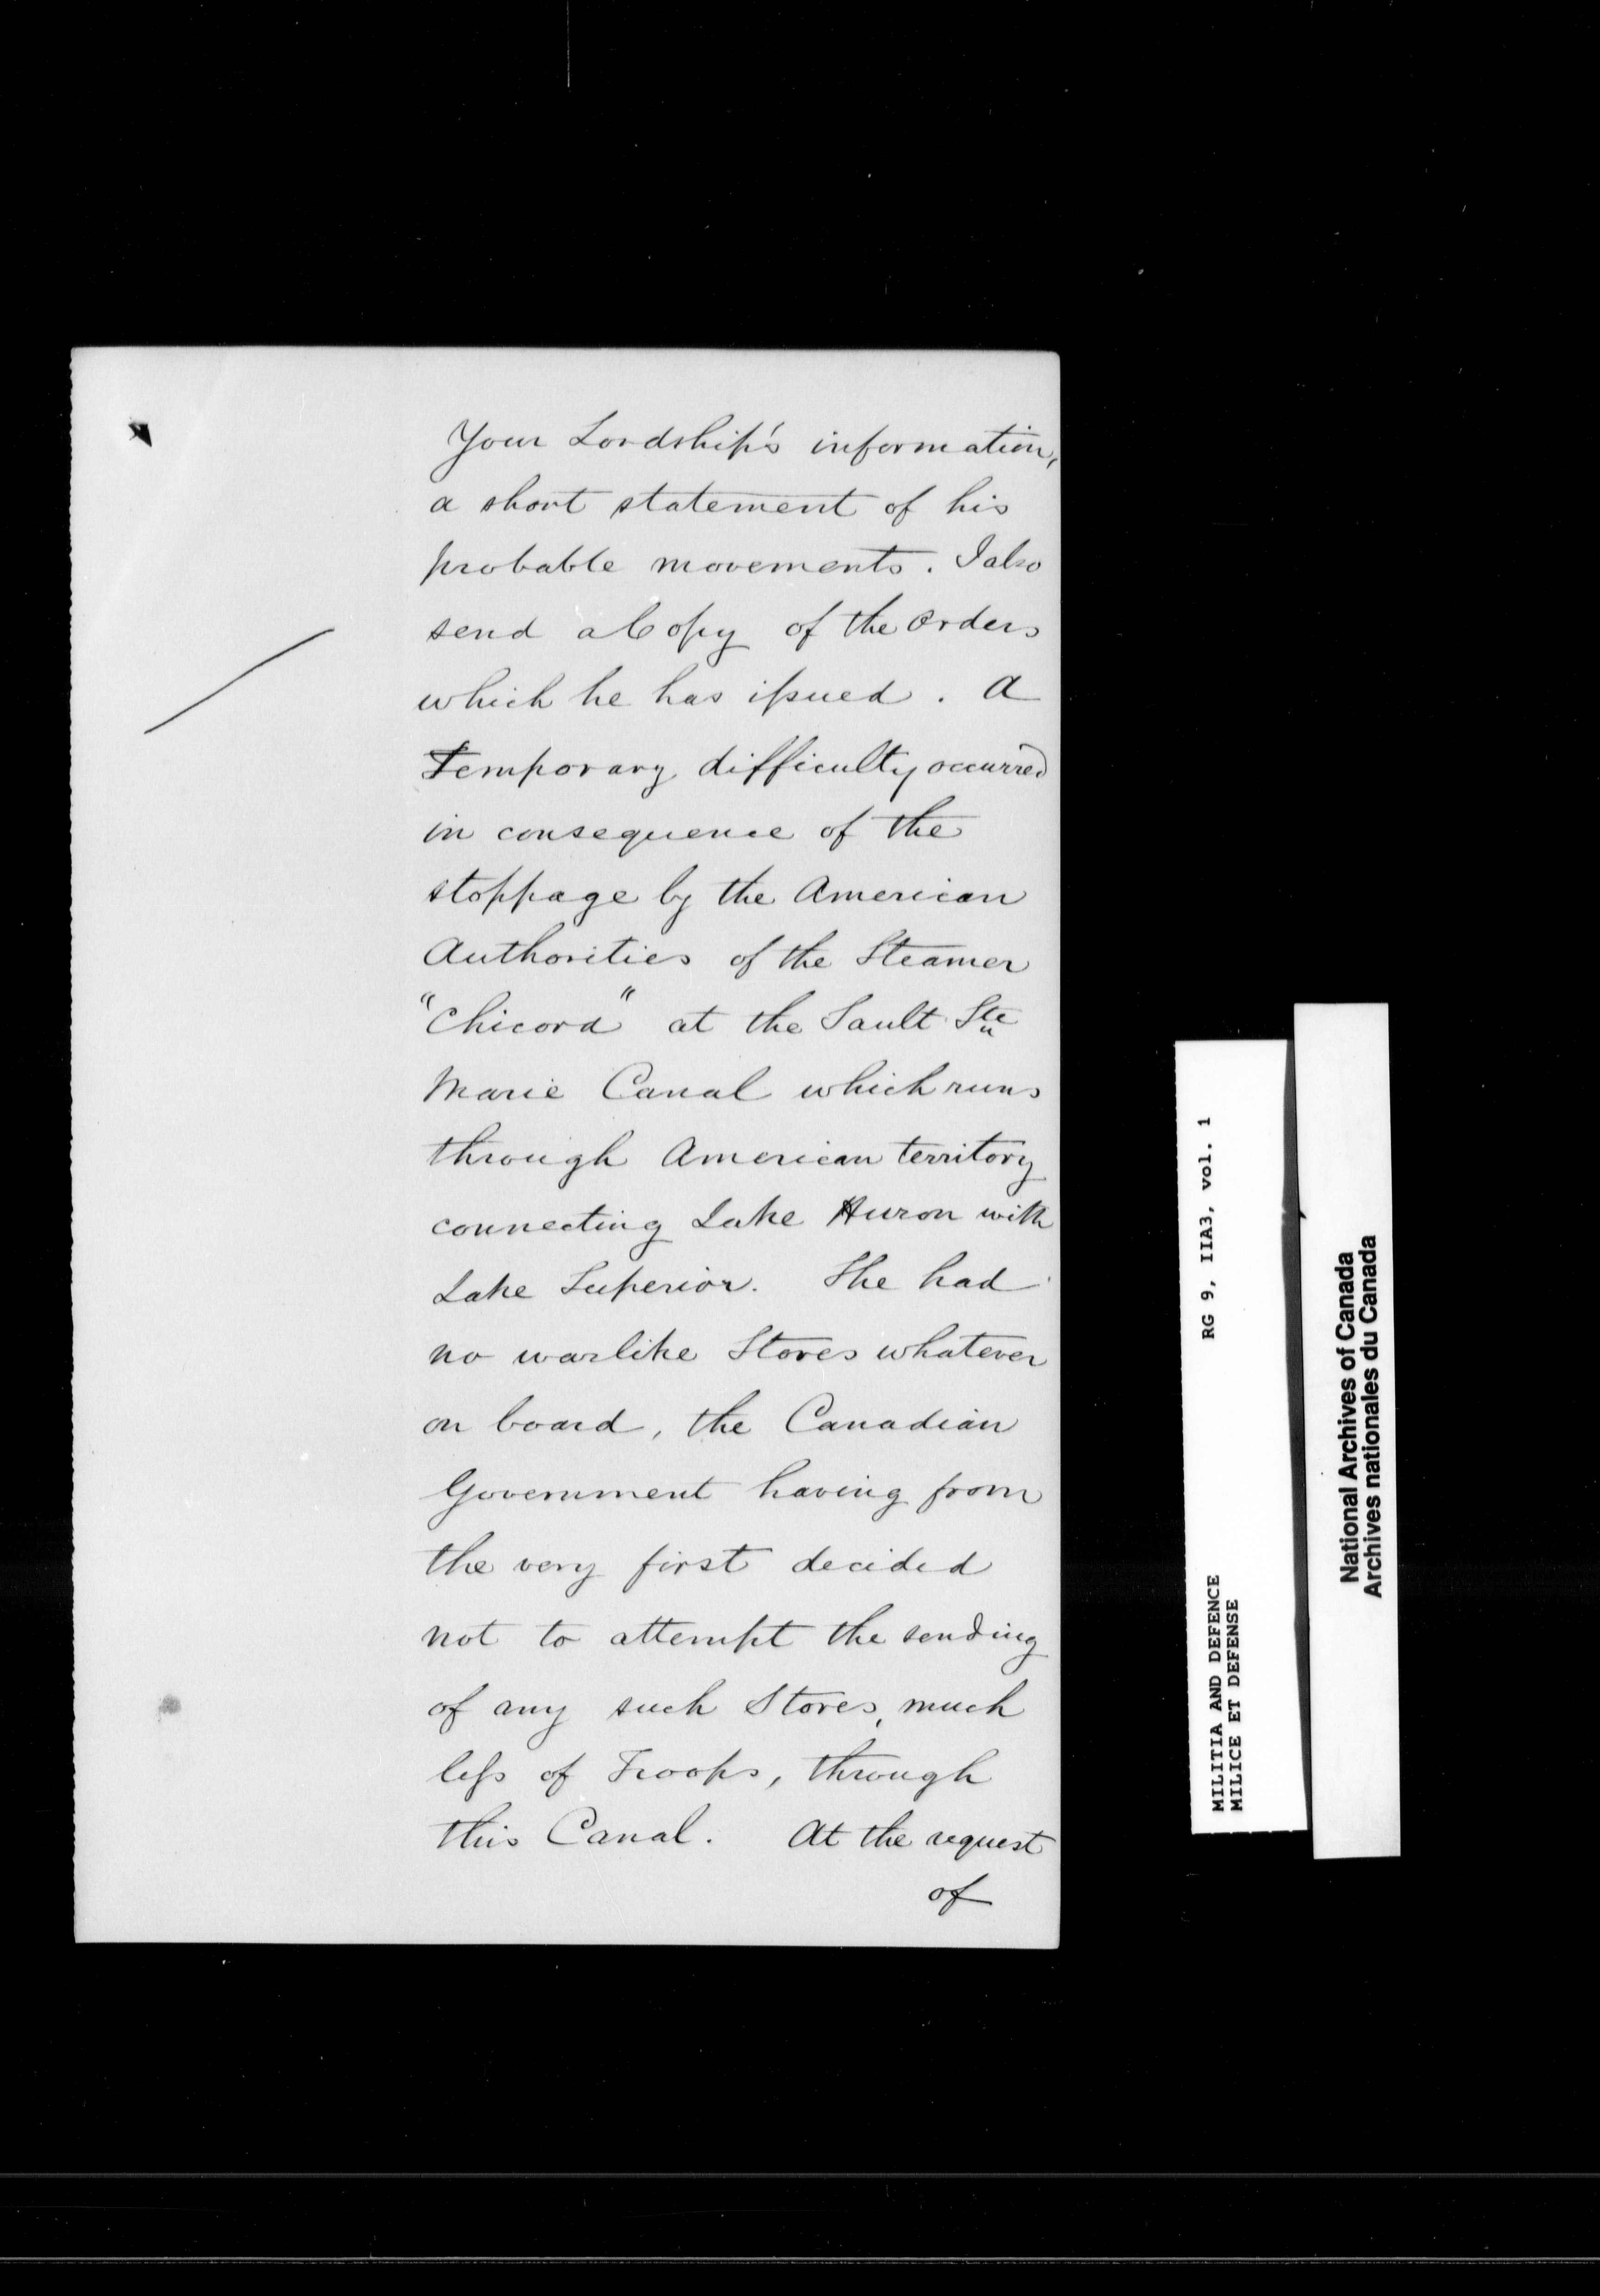 Your Lordship's information,
a short statement of his
probable movements. I also
send a Copy of the Orders
which he has issued. A
Temporary difficulty occurred
in consequence of the
stoppage by the American
Authorities of the Steamer
"Chicora" at the Sault Ste
Marie Canal which runs
through American territory
connecting Lake Huron with
Lake Superior. She had
no warlike Stores whatever
on board, the Canadian
Government having from
the very first decided
not to attempt the sending
of any such Stores, much
less of Troops, through
this Canal. At the request
of
MILITIA AND DEFENCE RG 9, IIA3, vol. 1
MILICE ET DEFENSE
National Archives of Canada
Archives nationales du Canada